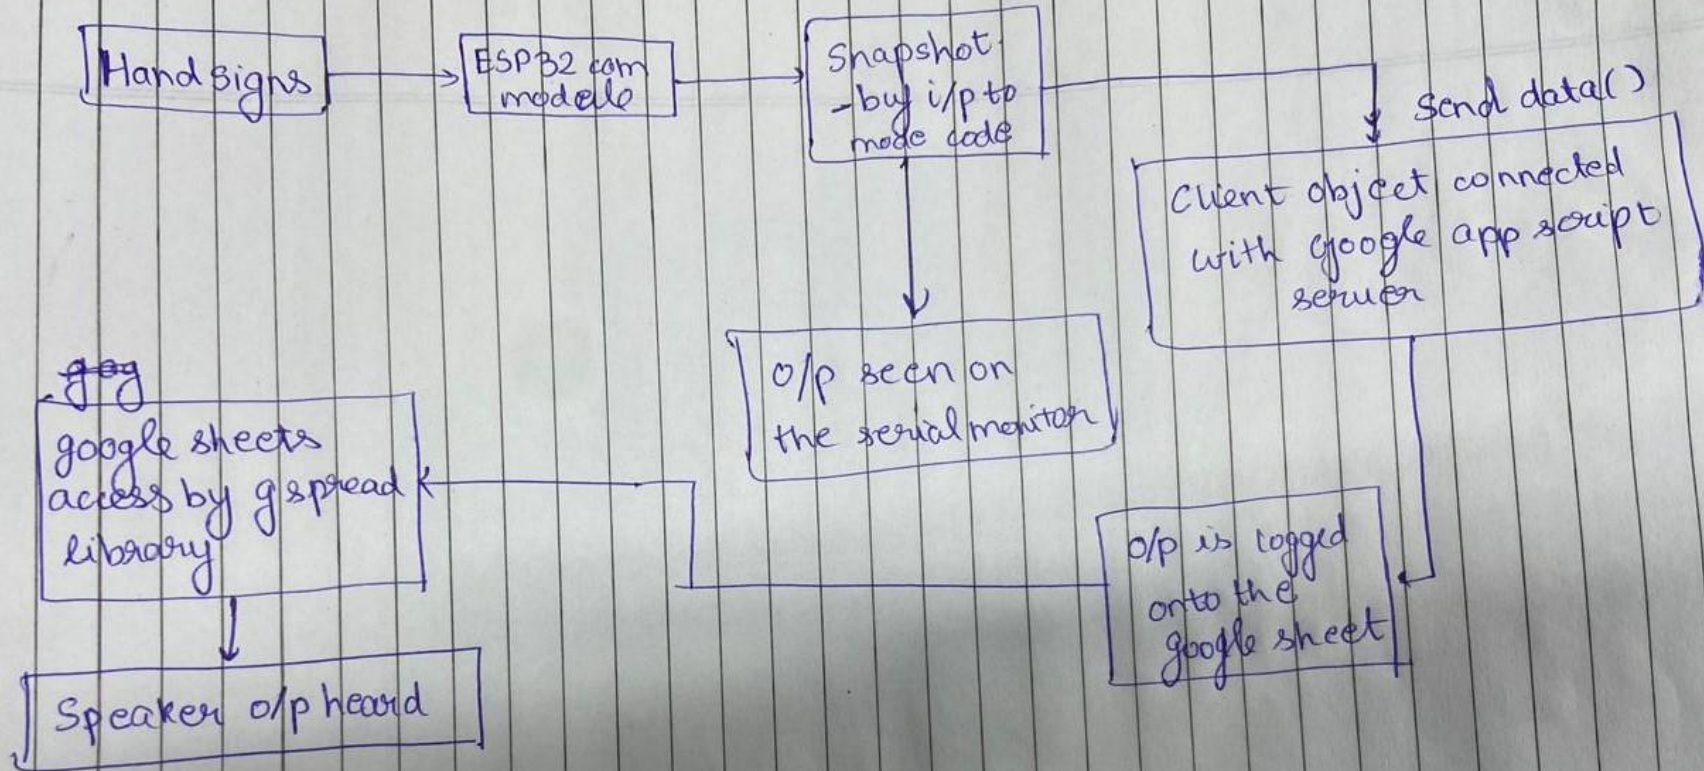 Hand signs
ESP32 com
modele
Snapshot
-buf i/p to
mode code
Send data()
Client object connected
with google app script
server
o/p seen on
the serial monitor
google sheets
access by gspread
library
o/p is logged
onto the
google sheet
Speaker o/p heard